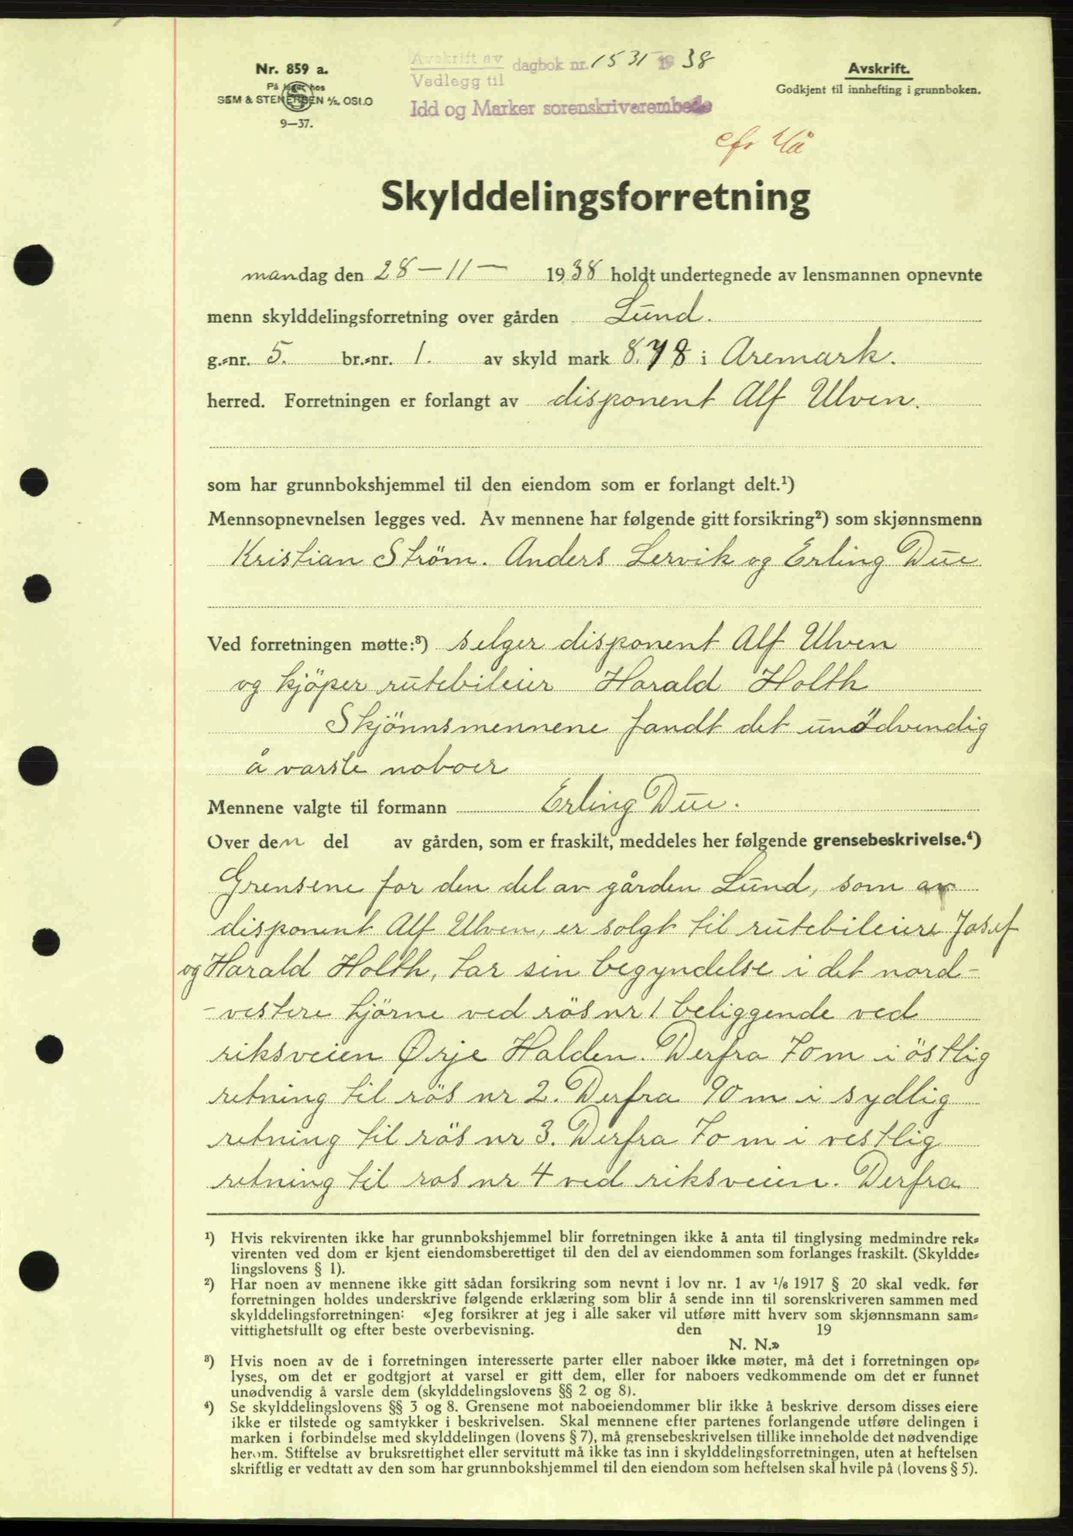 Nr. 859 a.
På lager hos
SEM & STENERSEN A/S, OSLO
9—37.
Avskrift av
Vedlegg til
dagbok nr. 1531 1938
Idd og Marker sorenskriverembede
Avskrift.
Godkjent til innhefting i grunnboken.
cfr
Skylddelingsforretning
mandag den 28 — 11 — 1938 holdt undertegnede av lensmannen opnevnte
menn skylddelingsforretning over gården Lund.
g.-nr. 5. br.-nr. 1. av skyld mark 8.78 i Aremark.
herred. Forretningen er forlangt av disponent Alf Ulven.
som har grunnbokshjemmel til den eiendom som er forlangt delt.¹)
Mennsopnevnelsen legges ved. Av mennene har følgende gitt forsikring²) som skjønnsmenn
Kristian Strøm. Anders Lervik og Erling Due
Ved forretningen møtte:³) selger disponent Alf Ulven
og kjöper rutebileier Harald Holth
Skjönnsmennene fandt det unödvendig
å varsle naboer
Mennene valgte til formann Erling Due.
Over den del av gården, som er fraskilt, meddeles her følgende grensebeskrivelse.⁴)
Grensene for den del av gården Lund, som av
disponent Alf Ulven, er solgt til rutebileiere Josef
og Harald Holth, tar sin begyndelse i det nord-
-vestere hjörne ved rös nr 1 beliggende ved
riksveien Ørje Halden. Derfra 70 m i östlig
retning til rös nr 2. Derfra 90 m i sydlig
retning til rös nr 3. Derfra 70 m i vestlig
retning til ros nr 4 ved riksveien. Derfra
¹) Hvis rekvirenten ikke har grunnbokshjemmel blir forretningen ikke å anta til tinglysing medmindre rek-
virenten ved dom er kjent eiendomsberettiget til den del av eiendommen som forlanges fraskilt. (Skyldde-
lingslovens § 1).
²) Har noen av mennene ikke gitt sådan forsikring som nevnt i lov nr. 1 av 1/6 1917 § 20 skal vedk. før
forretningen holdes underskrive følgende erklæring som blir å sende inn til sorenskriveren sammen med
skylddelingsforretningen: «Jeg forsikrer at jeg i alle saker vil utføre mitt hverv som skjønnsmann sam-
vittighetsfullt og efter beste overbevisning. den 19
N. N.»
³) Hvis noen av de i forretningen interesserte parter eller naboer ikke møter, må det i forretningen op-
lyses, om det er godtgjort at varsel er gitt dem, eller for naboers vedkommende om det er funnet
unødvendig å varsle dem (skylddelingslovens §§ 2 og 8).
⁴) Se skylddelingslovens §§ 3 og 8. Grensene mot naboeiendommer blir ikke å beskrive dersom disses eiere
ikke er tilstede og samtykker i beskrivelsen. Skal mennene efter partenes forlangende utføre delingen i
marken i forbindelse med skylddelingen (lovens § 7), må grensebeskrivelsen tillike inneholde det nødvendige
herom. Stiftelse av bruksrettighet eller servitutt må ikke tas inn i skylddelingsforretningen, uten at heftelsen
skriftlig er vedtatt av den som har grunnbokshjemmel til den eiendom som heftelsen skal hvile på (lovens § 5).